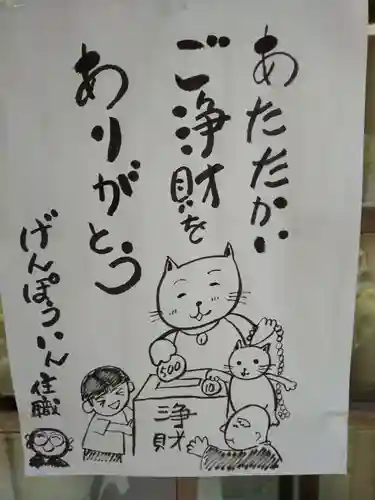 あたたかい
ご浄財を
ありがとう
げんぽういん住職
500
10
浄財